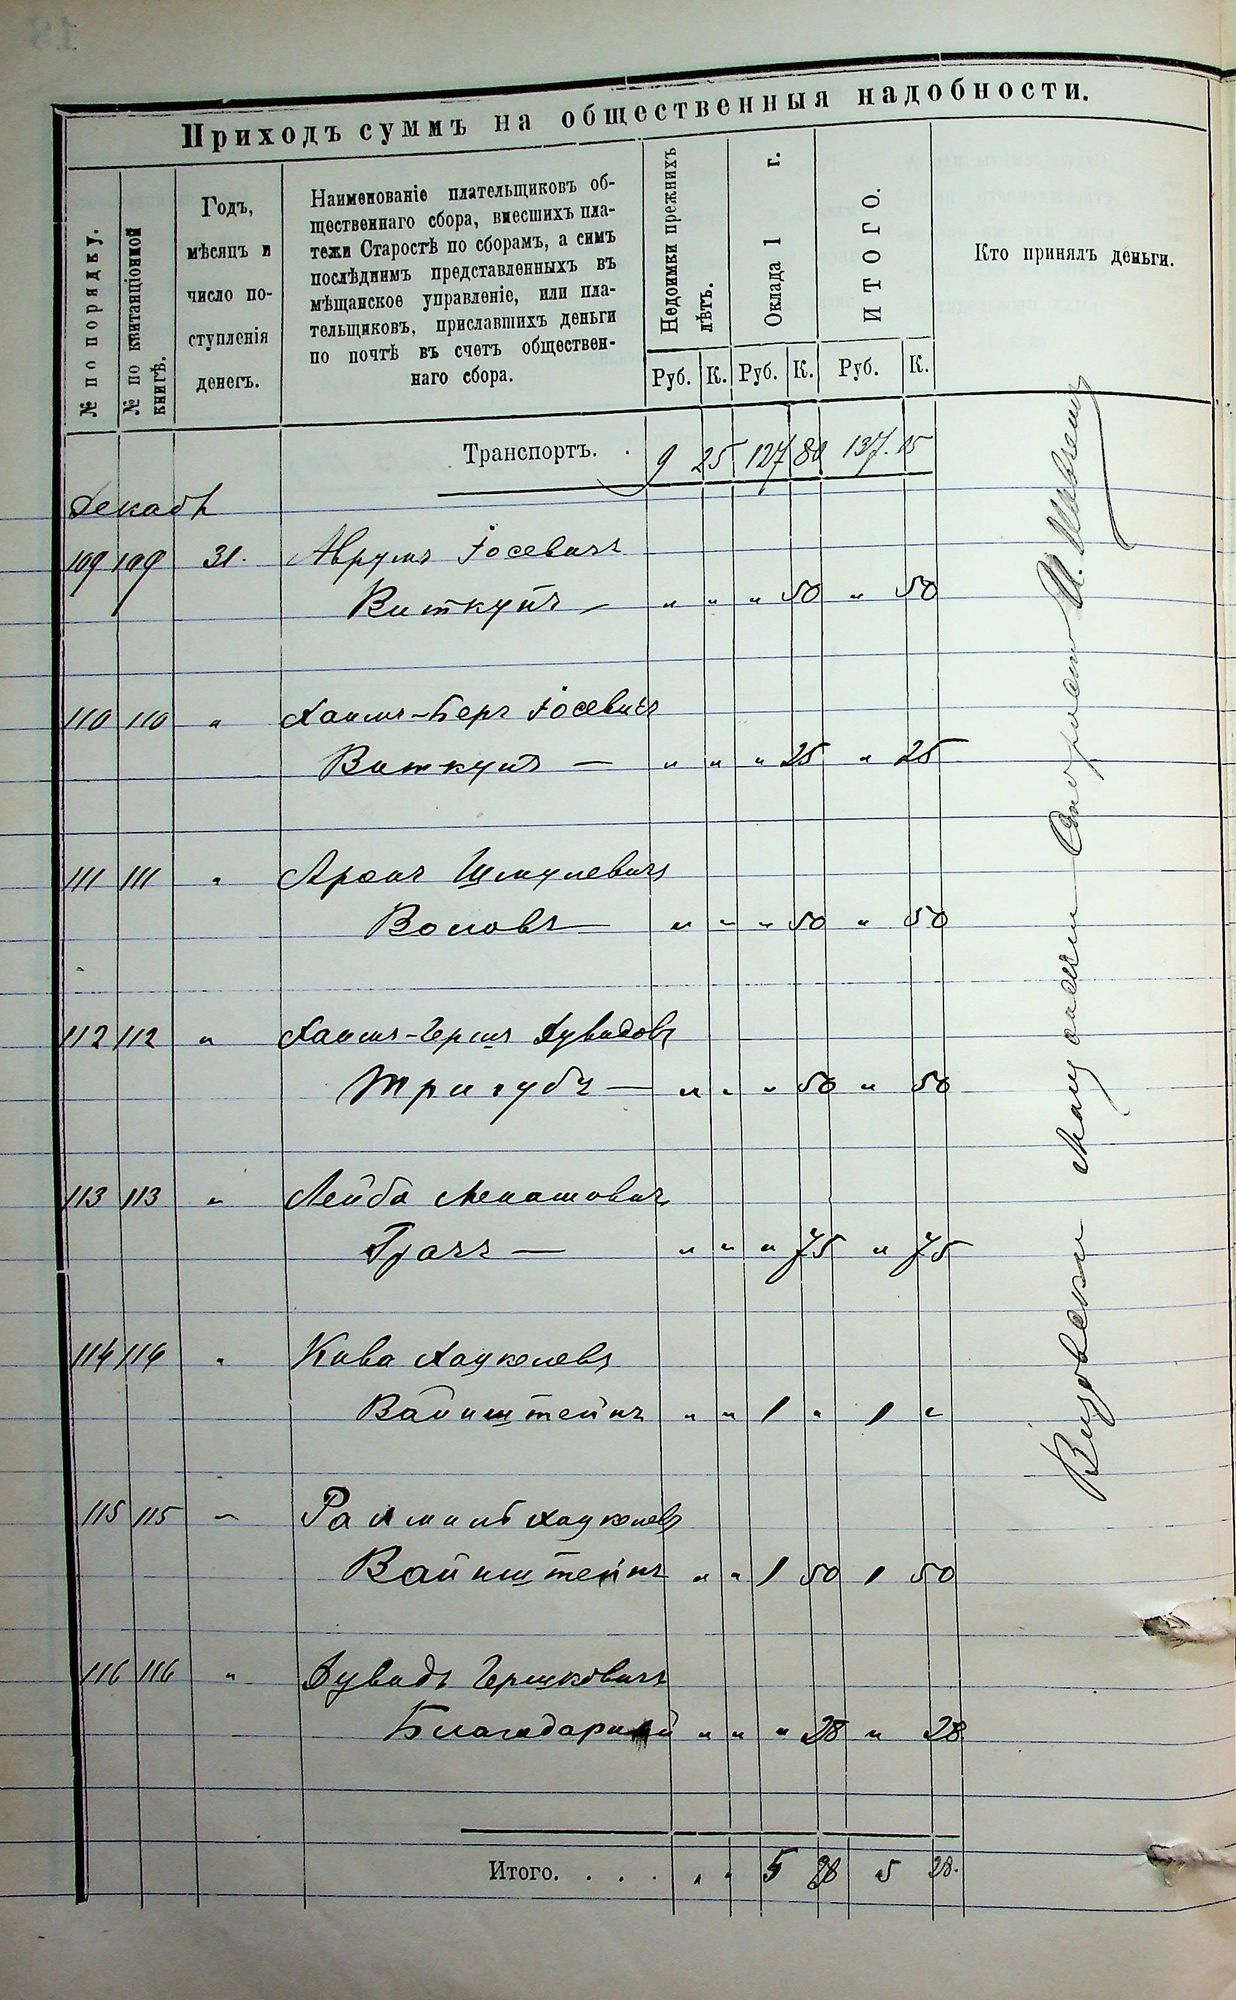 Приходъ суммъ на общественныя надобности.
№ по порядку.
№ по квитанціонной
книгѣ.
Годъ,
мѣсяцъ и
число по-
ступленія
денегъ.
Наименованіе плательщиковъ об-
щественнаго сбора, внесшихъ пла-
тежи Старостѣ по сборамъ, а симъ
послѣднимъ представленныхъ въ
мѣщанское управленіе, или пла-
тельщиковъ, приславшихъ деньги
по почтѣ въ счетъ обществен-
наго сбора.
Недоимки прежнихъ
лѣтъ.
Оклада 1 г.
ИТОГО.
Кто принялъ деньги.
Руб. К. Руб. К. Руб. К.
Транспортъ. . 9 25 127 80 137. 05
Декабъ
109 109 31. Аврумъ Іосевичъ
Виткупъ — " " " 50 " 50
110 110 " Хаимъ-Беръ Іосевичъ
Виткупъ — " " " 25 " 25
111 111 " Аронъ Шмулевичъ
Воловъ — " " " 50 " 50
112 112 " Хаимъ-Гершъ Дувидовъ
Тригубъ — " " " 50 " 50
113 113 " Лейба Менашовичъ
Грачъ — " " " 75 " 75
114 114 " Кива Хацкелевъ
Вайнштейнъ " " 1 " 1 "
115 115 " Хацкелевъ
Вайнштейнъ " " 1 50 1 50
116 116 " Дувидъ Гершковичъ
" " " 28 " 28
Итого. . . . . " " 5 28 5 28.